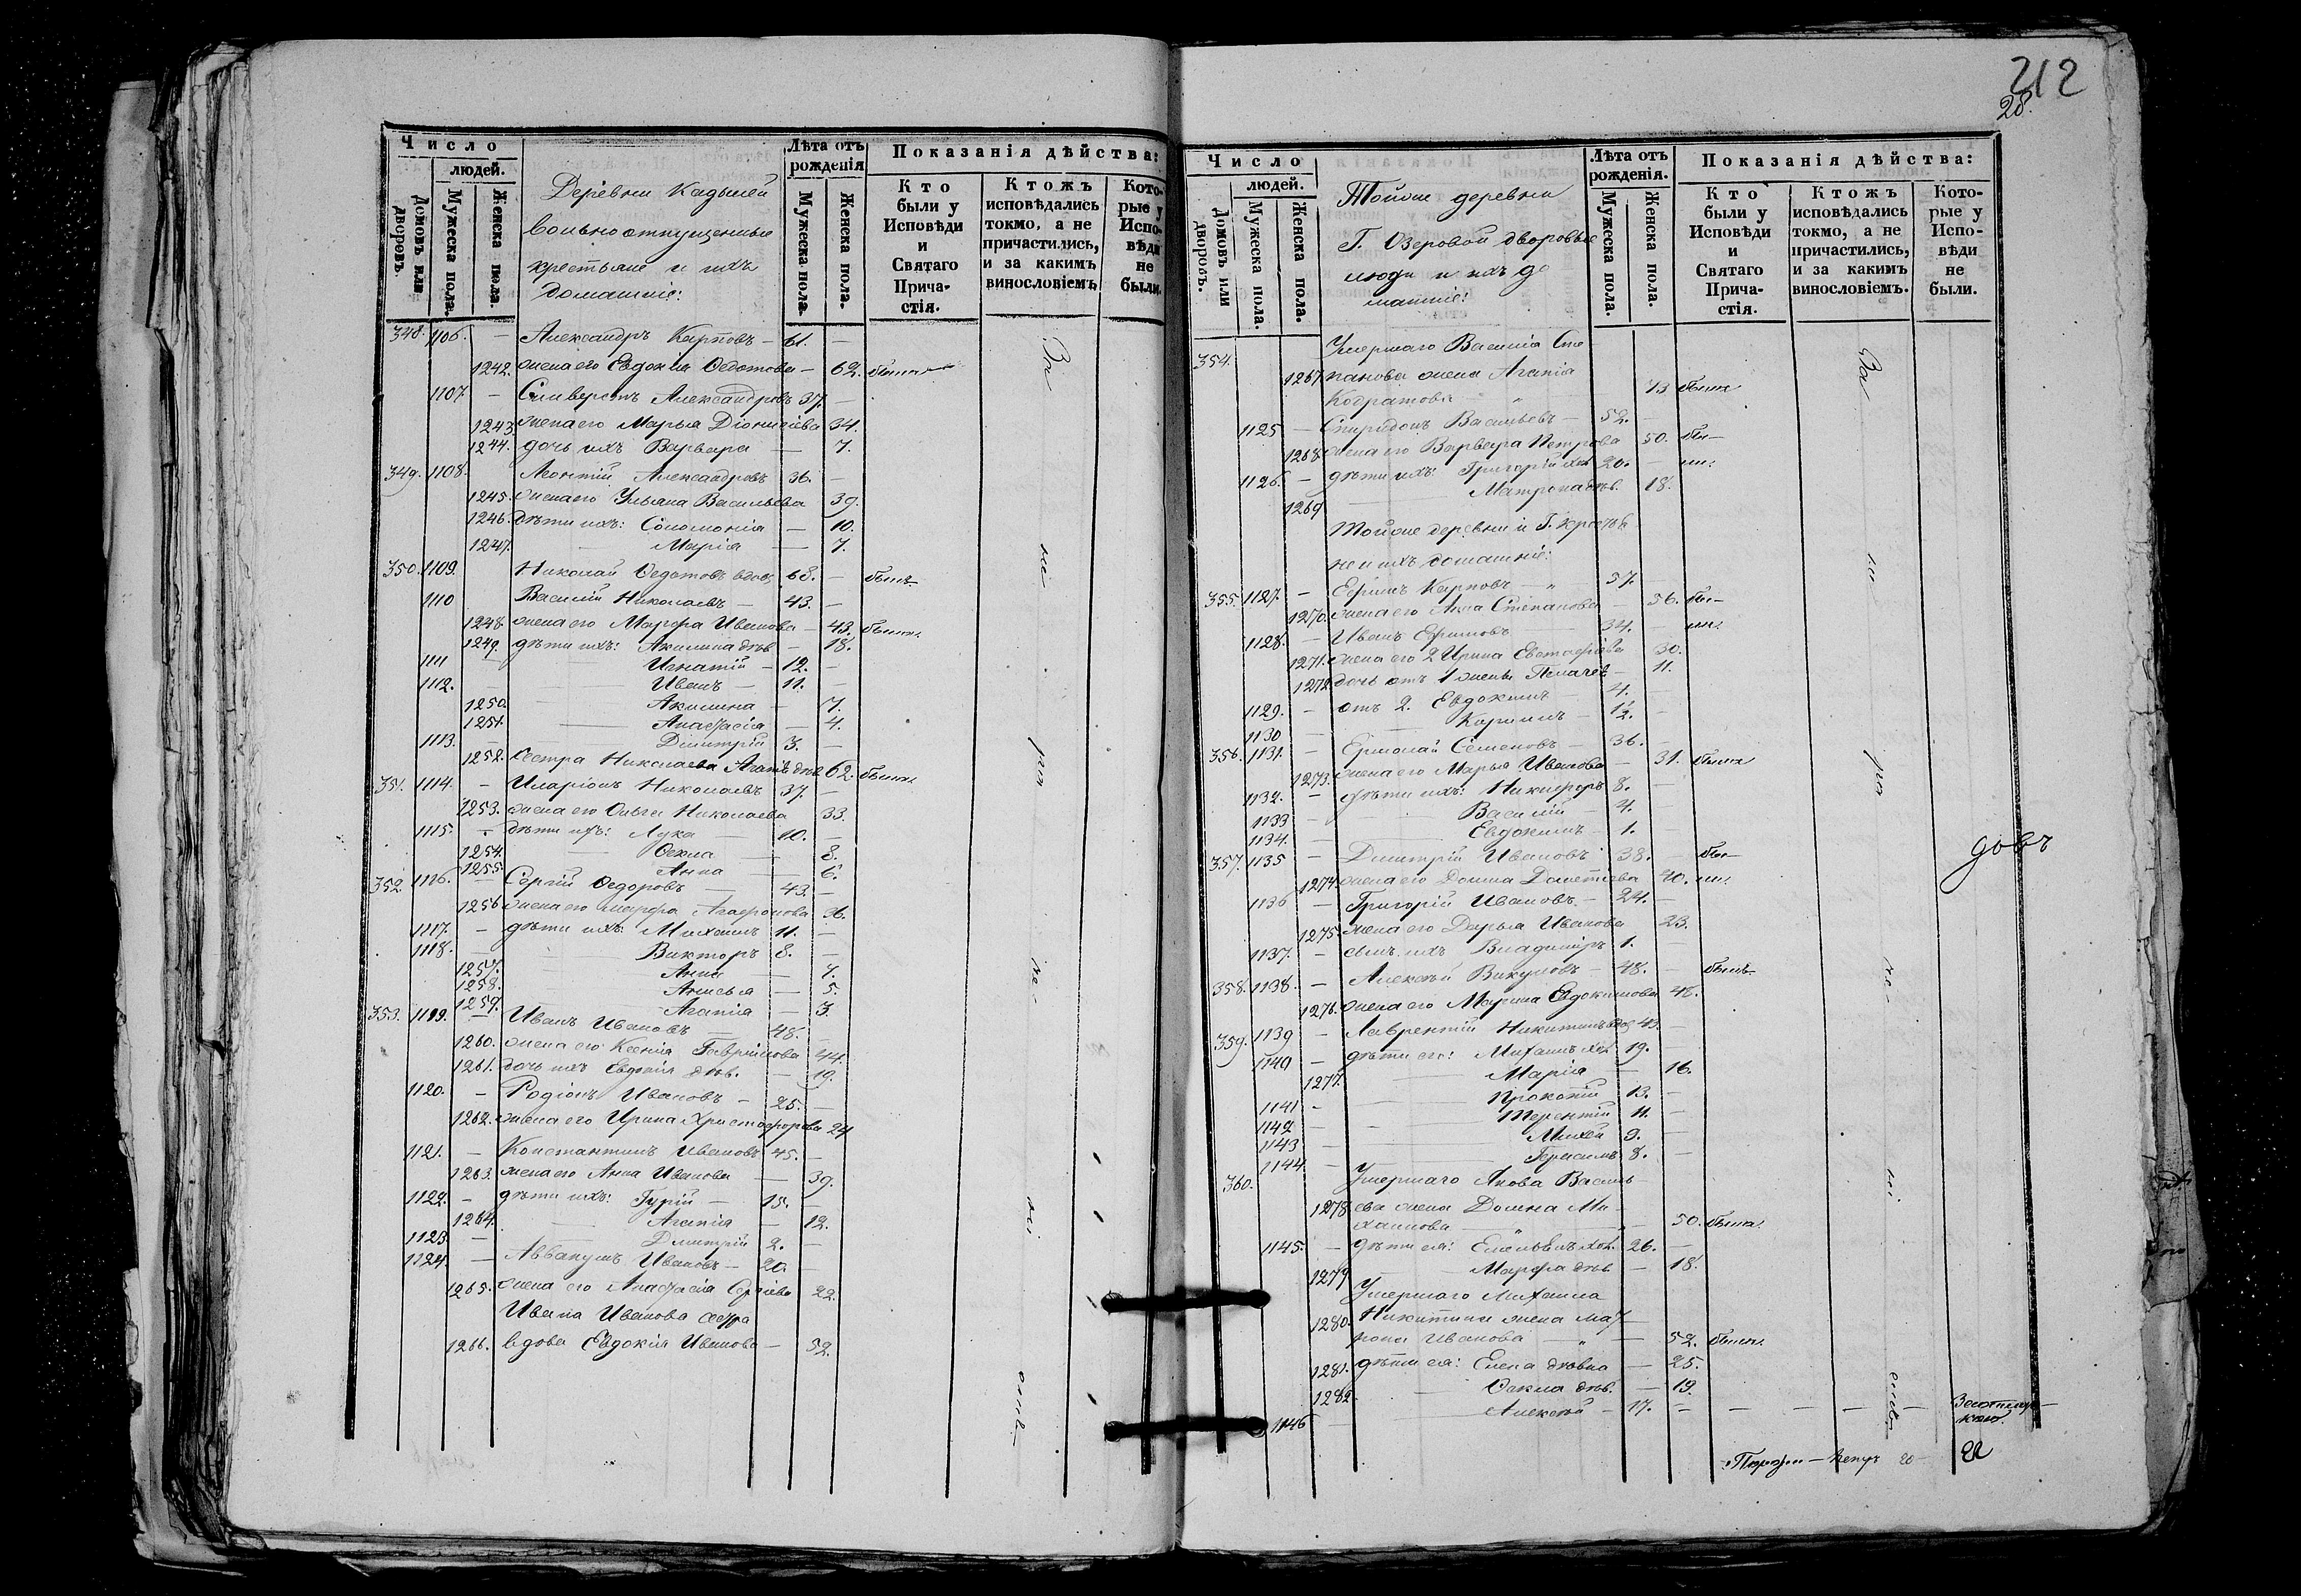 212
28.
Число
людей.
Домовъ или дворовъ.
Мужеска пола.
Женска пола.
Деревни Кадышей
вольноотпущенные
крестьяне и ихъ
домашніе:
Лѣта отъ рожденія
Мужеска пола.
Женска пола.
Показанія дѣйства:
Кто были у Исповѣди и Святаго Прича-стія.
Ктожъ исповѣдались токмо, а не причастились, и за какимъ винословіемъ
Кото-рые у Испо-вѣди не были.
348. 1106. — Александръ Карповъ — 61. —
1242. жена его Евдокия Ѳедотова — 62. были
1107 — Сильверстъ Александровъ 37. —
1243. жена его Марья Діонисіева 34.
1244. дочь ихъ Варвара — 7.
349. 1108. Леонтій Александровъ 36. —
1245. жена его Ульяна Васильева 39.
1246. дѣти ихъ: Соломонія — 10.
1247. — Марія — 7.
350. 1109. Николай Ѳедотовъ вдов. 68. — былъ
1110 Василій Николаевъ — 43. —
1248. жена его Марфа Иванова — 43. были
1249. дѣти ихъ: Акилина дѣв. — 18.
1111 — Игнатій — 12. —
1112. — Иванъ — 11. —
1250. — Акилина — 7.
1251. — Анастасія — 4.
1113. — Димитрій 3. —
1252. сестра Николаева Агапія дѣв. 62. была
351. 1114. — Иларіонъ Николаевъ 37. —
1253. жена его Ольга Николаева 33.
1115. — дѣти ихъ: Лука — 10. —
1254. — Ѳекла — 8.
1255. — Анна — 6.
352. 1116. — Сергій Ѳедоровъ — 43. —
1256 жена его Марфа Агафонова 36.
1117. — дѣти ихъ: Михаилъ 11. —
1118. — Викторъ 8. —
1257. — Анна — 7.
1258. — Анисья — 5.
1259. — Агапія — 3.
353. 1119. — Иванъ Ивановъ — 48. —
1260. жена его Ксенія Гавриилова 44.
1261. дочь ихъ Евдокія дѣв. — 19.
1120. — Родіонъ Ивановъ — 25. —
1262. жена его Ирина Христофорова 24
1121. — Константинъ Ивановъ 45. —
1263. жена его Анна Иванова — 39.
1122. — дѣти ихъ: Гурій — 15. —
1264. — Агапія — 12.
1123. — Димитрій 2. —
1124. — Аввакумъ Ивановъ — 20. —
1265. жена его Анастасія Сергіева 22.
Ивана Иванова сестра
1266. вдова Евдокія Иванова — 52.
За
не
Число
людей.
Домовъ или дворовъ.
Мужеска пола.
Женска пола.
Тойже деревни
Г. Озеровой дворовые
люди и ихъ до
машніе:
Лѣта отъ рожденія.
Мужеска пола.
Женска пола.
Показанія дѣйства:
Кто были у Исповѣди и Святаго Прича-стія.
Ктожъ исповѣдались токмо, а не причастились, и за какимъ винословіемъ.
Кото-рые у Испо-вѣди не были.
354. Умершаго Василія Сте
1267 панова жена Агапія
Кодратова — 73 была
1125 — Спиридонъ Васильевъ — 52. —
1268 жена его Варвара Петрова 50. бы—
1126. — дѣти ихъ: Григорій хол. 20. — ли.
1269 — Матрона дѣв. 18.
Тойже деревни и Г. кресть
не и ихъ домашніе:
355. 1127. — Ефимъ Карповъ — 57. —
1270. жена его Анна Степанова — 56. бы—
1128. — Иванъ Ефимовъ 34. — ли.
1271. жена его 2 Ирина Евстафіева 30.
1272 дочь отъ 1 жены Пелагея — 11.
1129. — отъ 2. Евдокимъ — 4. —
1130 — 1/2. —
356. 1131. — Ермолай Семеновъ — 36. —
1273. жена его Марья Иванова — 31. были
1132. — дѣти ихъ: Никифоръ 8. —
1133 — Василій — 4. —
1134. — Евдокимъ — 1. —
357. 1135 — Димитрій Ивановъ 38. — бы—
1274 жена его Домна Дометіева 40. ли.
1136 — Григорій Ивановъ — 24. —
1275. жена его Дарья Иванова 23.
1137. — сынъ ихъ Владиміръ 1.
358. 1138. — Алексѣй Викуловъ — 48. — былъ
1276. жена его Марина Евдокимова 48.
359. 1139 — Лаврентій Никитинъ вдов. 43. —
1140 — дѣти его: Михаилъ хол. 19. —
1277. — Марія — 16.
1141 — Прокопій 13. —
1142 — Терентій 11. —
1143 — Михей 9. —
1144. — Герасимъ 8. —
360. Умершаго Якова Василь
1278 ева жена Домна Ми
хаилова — 50. была.
1145. — дѣти ея: Емельянъ хол. 26. —
1279 — Марфа дѣв. — 18.
Умершаго Михаила
1280. Никитина жена Мат
рона Иванова — 52. была.
1281. дѣти ея: Елена дѣвка — 25.
1282. — Ѳекла дѣв. — 19.
1146 — Алексѣй — 17. —
За
довъ